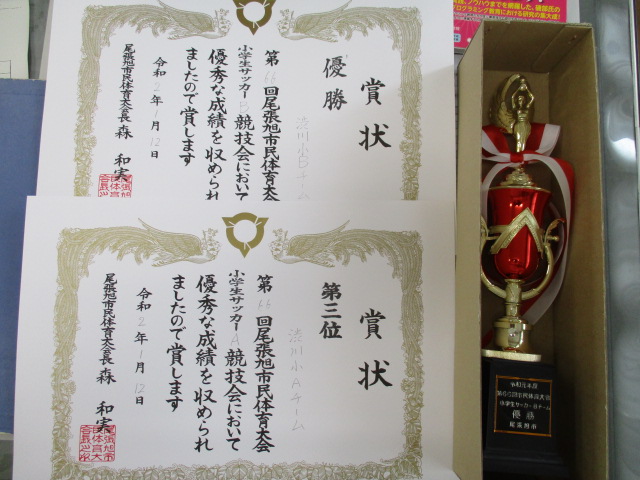 賞状
優勝
渋川小Bチーム
第66回尾張旭市民体育大会
小学生サッカーB競技会において
優秀な成績を収められ
ましたので賞します
令和2年1月12日
尾張旭市民体育大会長 森 和実
賞状
第三位
渋川小Aチーム
第66回尾張旭市民体育大会
小学生サッカーA競技会において
優秀な成績を収められ
ましたので賞します
令和2年1月12日
尾張旭市民体育大会長 森 和実
令和元年度
第66回市民体育大会
小学生サッカーBチーム
優勝
尾張旭市